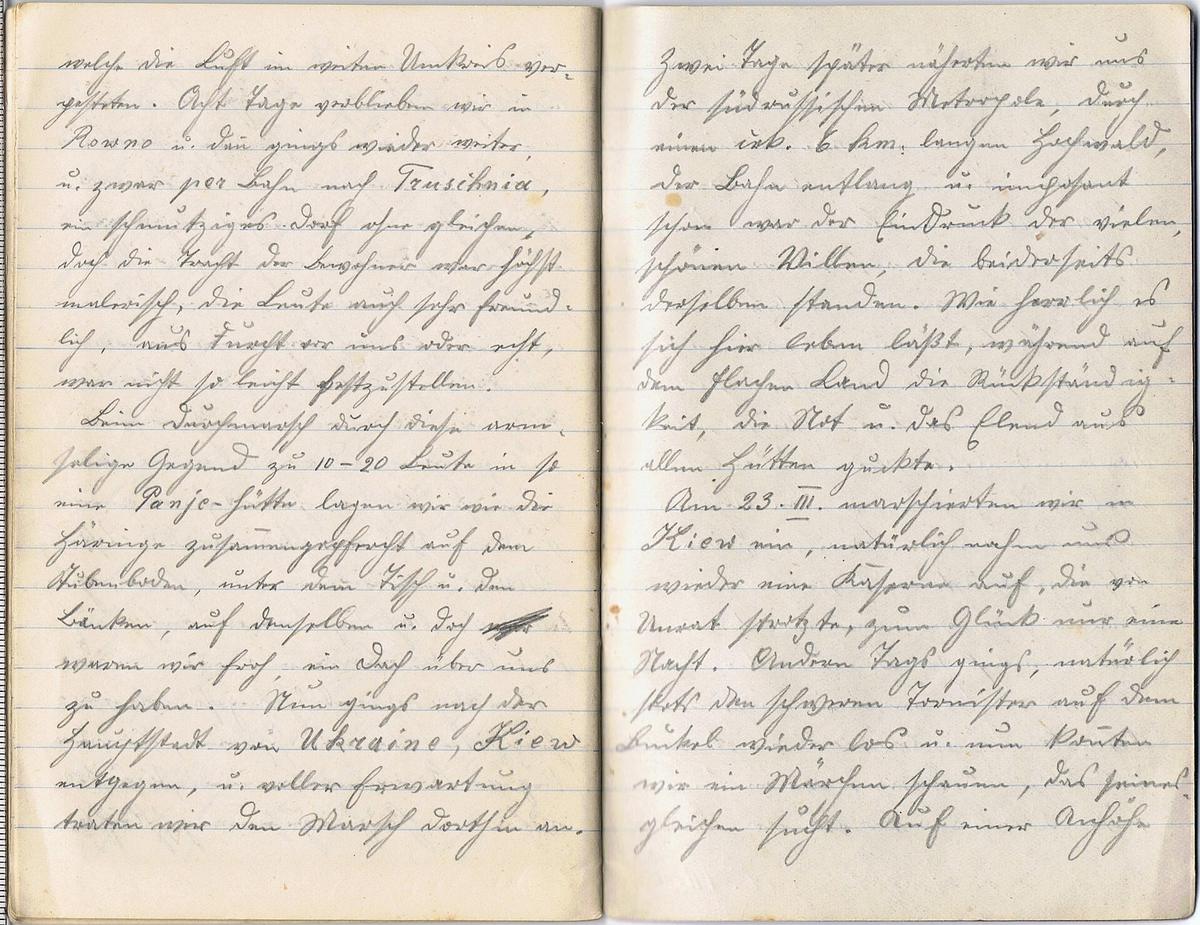 welche die Luft im weiten Umkreis ver-
pesteten. Acht Tage verblieben wir in
Rowno u. dan̄ gings wieder weiter,
u. zwar per Bahn nach Truschnia,
ein schmutziges Dorf ohne gleichen,
doch die Tracht der Bewohner war höchst
malerisch, die Leute auch sehr freund-
lich, aus Furcht vor uns oder echt,
war nicht so leicht festzustellen.
Beim Durchmarsch durch diese arm-
selige Gegend zu 10-20 Leute in so
eine Panje-Hütte lagen wir wie die
Häringe zusam̄engepfercht auf dem
Stubenboden, unter dem Tisch u. den
Bänken, auf denselben u. doch
waren wir froh, ein Dach über uns
zu haben. Nun gings nach der
Hauptstadt von Ukraine, Kiew
entgegen, u. voller Erwartung
traten wir den Marsch dorthin an.
Zwei Tage später näherten wir uns
der südrussischen Metropole, durch
einen 6 km. langen Hochwald,
der Bahn entlang u. imposant
schon war der Eindruck der vielen,
schönen Villen, die beiderseits
derselben standen. Wie herrlich es
sich hier leben läßt, während auf
dem flachen Land die Rückständig-
keit, die Not u. das Elend aus
allen Hütten guckte.
Am 23. III. marschierten wir in
Kiew ein, natürlich nahm uns
wieder eine Kaserne auf, die von
Unrat strotzte, zum Glück nur eine
Nacht. Andern Tags gings, natürlich
stets den schweren Tornister auf dem
Buckel wieder los u. nun kon̄ten
wir ein Märchen schauen, das seines-
gleichen sucht. Auf einer Anhöhe